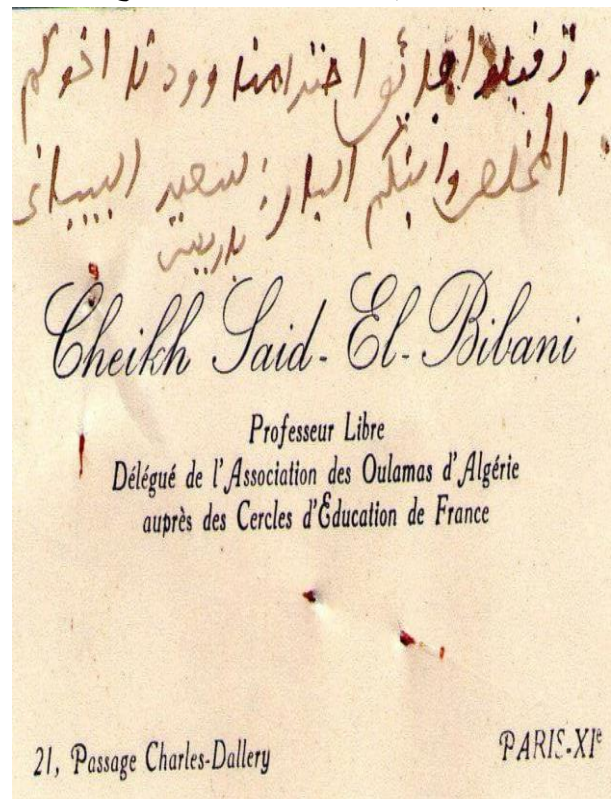 وتقبلوا فائق احترامنا وودنا اخوكم
المخلص وابنكم البار: سعيد البيباني
باريس
Cheikh Said-El-Bibani
Professeur Libre
Délégué de l'Association des Oulamas d'Algérie
auprès des Cercles d'Éducation de France
21, Passage Charles-Dallery
PARIS-XIᵉ